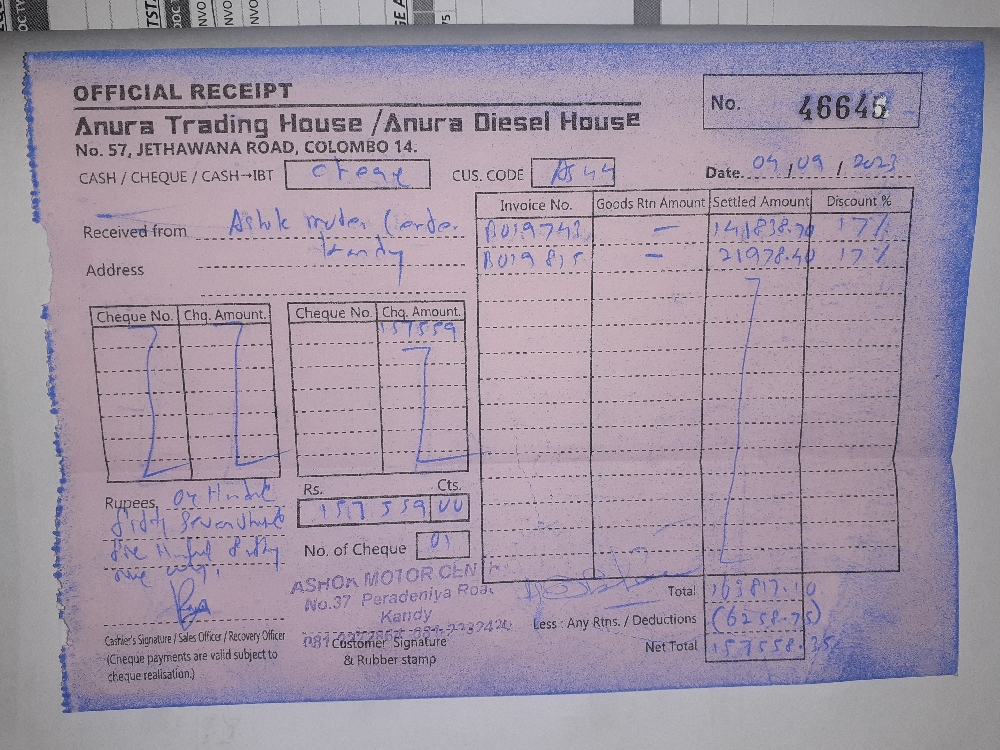 OFFICIAL RECEIPT
No. 46645
Anura Trading House / Anura Diesel House
No. 57, JETHAWANA ROAD, COLOMBO 14.
CASH / CHEQUE / CASH→IBT
CUS. CODE AS44
Date. 04 / 09 / 2023
Received from Ashok
Address Kandy
Invoice No. Goods Rtn Amount Settled Amount Discount %
B019743 – 141838.70 17%
B019815 – 21978.40 17%
Cheque No. Chq. Amount. Cheque No. Chq. Amount.
157559
Rupees
Rs. Cts.
157559 00
No. of Cheque 01
ASHOK MOTOR CENTR
No.37 Peradeniya Road
Kandy
Cashier's Signature / Sales Officer / Recovery Officer
(Cheque payments are valid subject to
cheque realisation.)
Customer Signature
& Rubber stamp
Total 163817.10
Less : Any Rtns. / Deductions (6258.75)
Net Total 157558.35